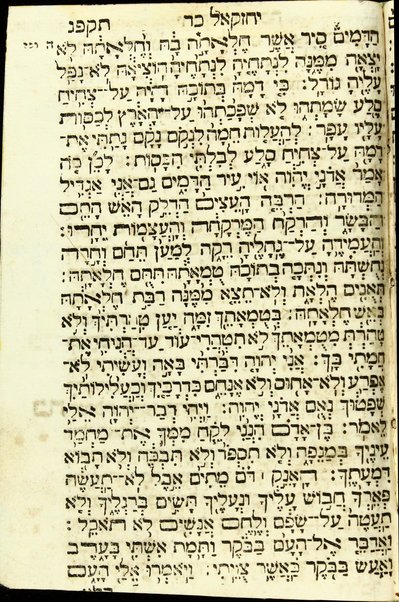 יחזקאל כד תקפג
הַדָּמִים סִיר אֲשֶׁר חֶלְאָתָהּ בָהּ וְחֶלְאָתָהּ לֹא
יָצְאָה מִמֶּנָּה לִנְתָחֶיהָ לִנְתָחֶיהָ הוֹצִיאָהּ לֹא־נָפַל
עָלֶיהָ גּוֹרָל׃ כִּי דָמָהּ בְּתוֹכָהּ הָיָה עַל־צְחִיחַ
סֶלַע שָׂמָתְהוּ לֹא שְׁפָכַתְהוּ עַל־הָאָרֶץ לְכַסּוֹת
עָלָיו עָפָר׃ לְהַעֲלוֹת חֵמָה לִנְקֹם נָקָם נָתַתִּי אֶת־
דָּמָהּ עַל־צְחִיחַ סָלַע לְבִלְתִּי הִכָּסוֹת׃ לָכֵן כֹּה
אָמַר אֲדֹנָי יֱהוִה אוֹי עִיר הַדָּמִים גַּם־אֲנִי אַגְדִּיל
הַמְּדוּרָה׃ הַרְבֵּה הָעֵצִים הַדְלֵק הָאֵשׁ הָתֵם
הַבָּשָׂר וְהַרְקַח הַמֶּרְקָחָה וְהָעֲצָמוֹת יֵחָרוּ׃
וְהַעֲמִידֶהָ עַל־גֶּחָלֶיהָ רֵקָה לְמַעַן תֵּחַם וְחָרָה
נְחֻשְׁתָּהּ וְנִתְּכָה בְתוֹכָהּ טֻמְאָתָהּ תִּתֻּם חֶלְאָתָהּ׃
תְּאֻנִים הֶלְאָת וְלֹא־תֵצֵא מִמֶּנָּה רַבַּת חֶלְאָתָהּ
בְּאֵשׁ חֶלְאָתָהּ׃ בְּטֻמְאָתֵךְ זִמָּה יַעַן טִהַרְתִּיךְ וְלֹא
טָהַרְתְּ מִטֻּמְאָתֵךְ לֹא תִטְהֲרִי־עוֹד עַד־הֲנִיחִי אֶת־
חֲמָתִי בָּךְ׃ אֲנִי יְהוָה דִּבַּרְתִּי בָּאָה וְעָשִׂיתִי לֹא־
אֶפְרַע וְלֹא־אָחוּס וְלֹא אֶנָּחֵם כִּדְרָכַיִךְ וְכַעֲלִילוֹתַיִךְ
שְׁפָטוּךְ נְאֻם אֲדֹנָי יֱהוִה׃ וַיְהִי דְבַר־יְהוָה אֵלַי
לֵאמֹר׃ בֶּן־אָדָם הִנְנִי לֹקֵחַ מִמְּךָ אֶת־מַחְמַד
עֵינֶיךָ בְּמַגֵּפָה וְלֹא תִסְפֹּד וְלֹא תִבְכֶּה וְלֹא תָבוֹא
דִּמְעָתֶךָ׃ הֵאָנֵק דֹּם מֵתִים אֵבֶל לֹא־תַעֲשֶׂה
פְּאֵרְךָ חֲבוֹשׁ עָלֶיךָ וּנְעָלֶיךָ תָּשִׂים בְּרַגְלֶיךָ וְלֹא
תַעְטֶה עַל־שָׂפָם וְלֶחֶם אֲנָשִׁים לֹא תֹאכֵל׃
וָאֲדַבֵּר אֶל־הָעָם בַּבֹּקֶר וַתָּמָת אִשְׁתִּי בָּעָרֶב
וָאַעַשׂ בַּבֹּקֶר כַּאֲשֶׁר צֻוֵּיתִי׃ וַיֹּאמְרוּ אֵלַי הָעָם